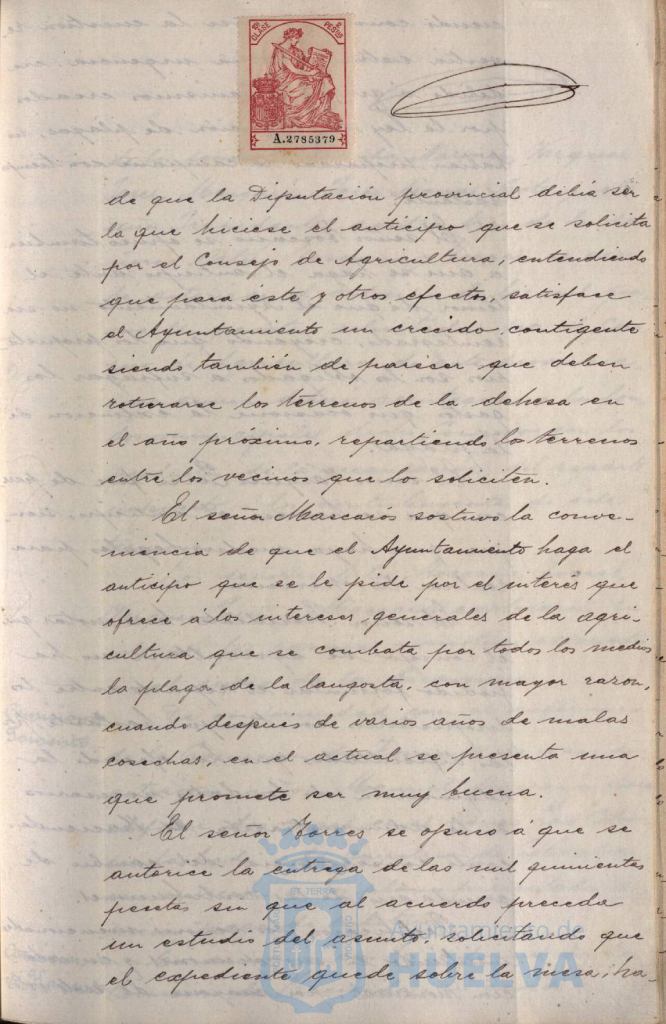 10ª CLASE 2 PESTAS
A.2785379
de que la Diputación provincial debía ser
la que hiciese el anticipo que se solicita
por el Consejo de Agricultura, entendiendo
que para éste y otros efectos, satisface
el Ayuntamiento un crecido contigente
siendo también de parecer que deben
roturarse los terrenos de la dehesa en
el año próximo, repartiendo los terrenos
entre los vecinos que lo soliciten.
El señor Mascarós sostuvo la conve-
niencia de que el Ayuntamiento haga el
anticipo que se le pide por el interés que
ofrece á los intereses generales de la agri-
cultura que se combata por todos los medios
la plaga de la langosta, con mayor razon,
cuando después de varios años de malas
cosechas, en el actual se presenta una
que promete ser muy buena.
El señor Torres se opuso á que se
autorice la entrega de las mil quinientas
pesetas sin que al acuerdo preceda
un estudio del asunto, solicitando que
el expediente quede sobre la mesa, ha-
Ayuntamiento de
HUELVA